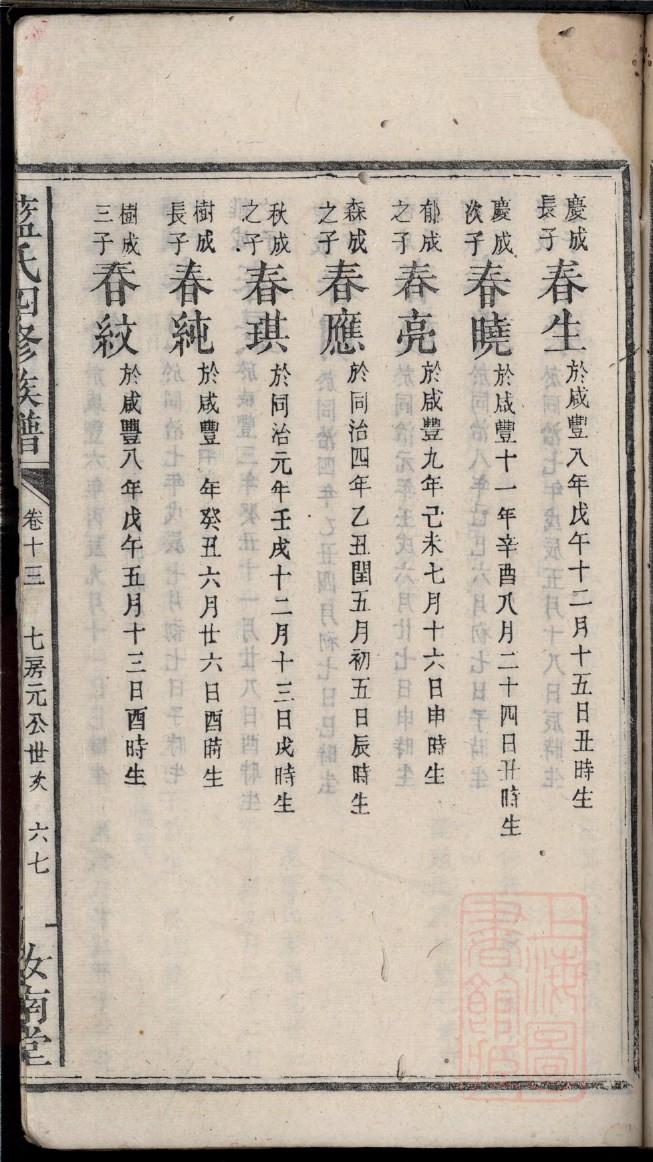 慶成長子春生於咸豐八年戊午十二月十五日丑時生
慶成次子春曉於咸豐十一年辛酉八月二十四日丑時生
郁成之子春亮於咸豐九年己未七月十六日申時生
森成之子春應於同治四年乙丑閏五月初五日辰時生
秋成之子春琪於同治元年壬戌十二月十三日戌時生
樹成長子春純於咸豐年癸丑六月廿六日酉時生
樹成三子春紋於咸豐八年戊午五月十三日酉時生
藍氏四修族譜 卷十三 七房元公世系 六七 汝南堂
上海圖書館藏